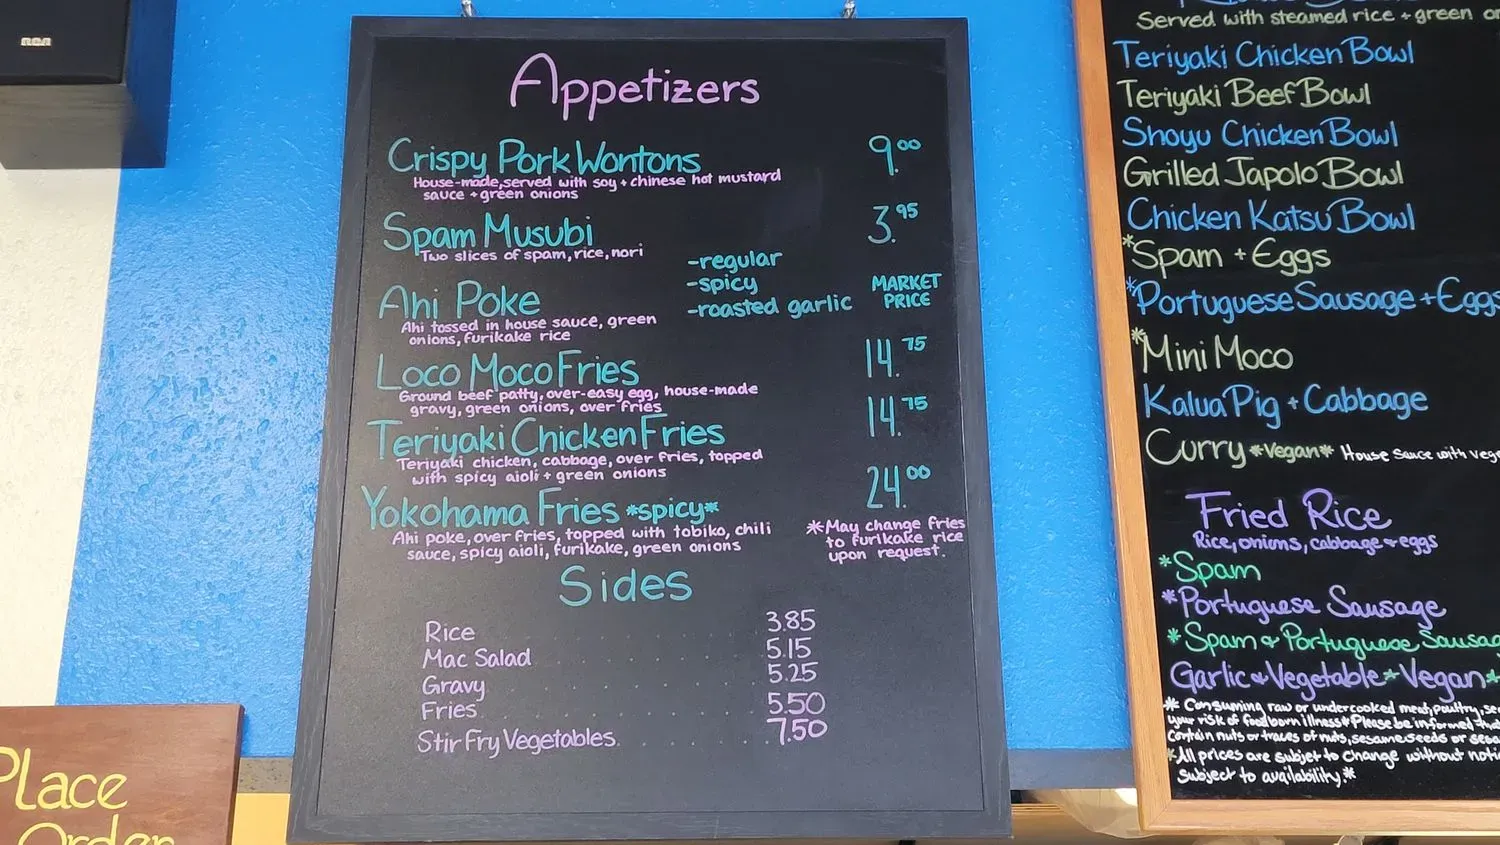 RCA
Appetizers
Crispy Pork Wontons 9.00
House-made, served with soy + chinese hot mustard
sauce + green onions
Spam Musubi 3.95
Two slices of spam, rice, nori
Ahi Poke
-regular
-spicy
-roasted garlic
MARKET
PRICE
Ahi tossed in house sauce, green
onions, furikake rice
Loco Moco Fries 14.75
Ground beef patty, over-easy egg, house-made
gravy, green onions, over fries
Teriyaki Chicken Fries 14.75
Teriyaki chicken, cabbage, over fries, topped
with spicy aioli + green onions
Yokohama Fries *spicy* 24.00
Ahi poke, over fries, topped with tobiko, chili
sauce, spicy aioli, furikake, green onions
*May change fries
to furikake rice
upon request.
Sides
Rice 3.85
Mac Salad 5.15
Gravy 5.25
Fries 5.50
Stir Fry Vegetables 7.50
Served with steamed rice + green
Teriyaki Chicken Bowl
Teriyaki Beef Bowl
Shoyu Chicken Bowl
Grilled Japolo Bowl
Chicken Katsu Bowl
*Spam + Eggs
*Portuguese Sausage + Eggs
*Mini Moco
Kalua Pig + Cabbage
Curry *Vegan* House Sauce with
Fried Rice
Rice, onions, cabbage + eggs
*Spam
*Portuguese Sausage
*Spam & Portuguese Sausag
Garlic & Vegetable *Vegan*
* Consuming raw or undercooked meat, poultry,
your risk of foodborn illness * Please be informed
Contain nuts or traces of nuts, sesame seeds or
*All prices are subjet to change without
subject to availability.*
Place
Order